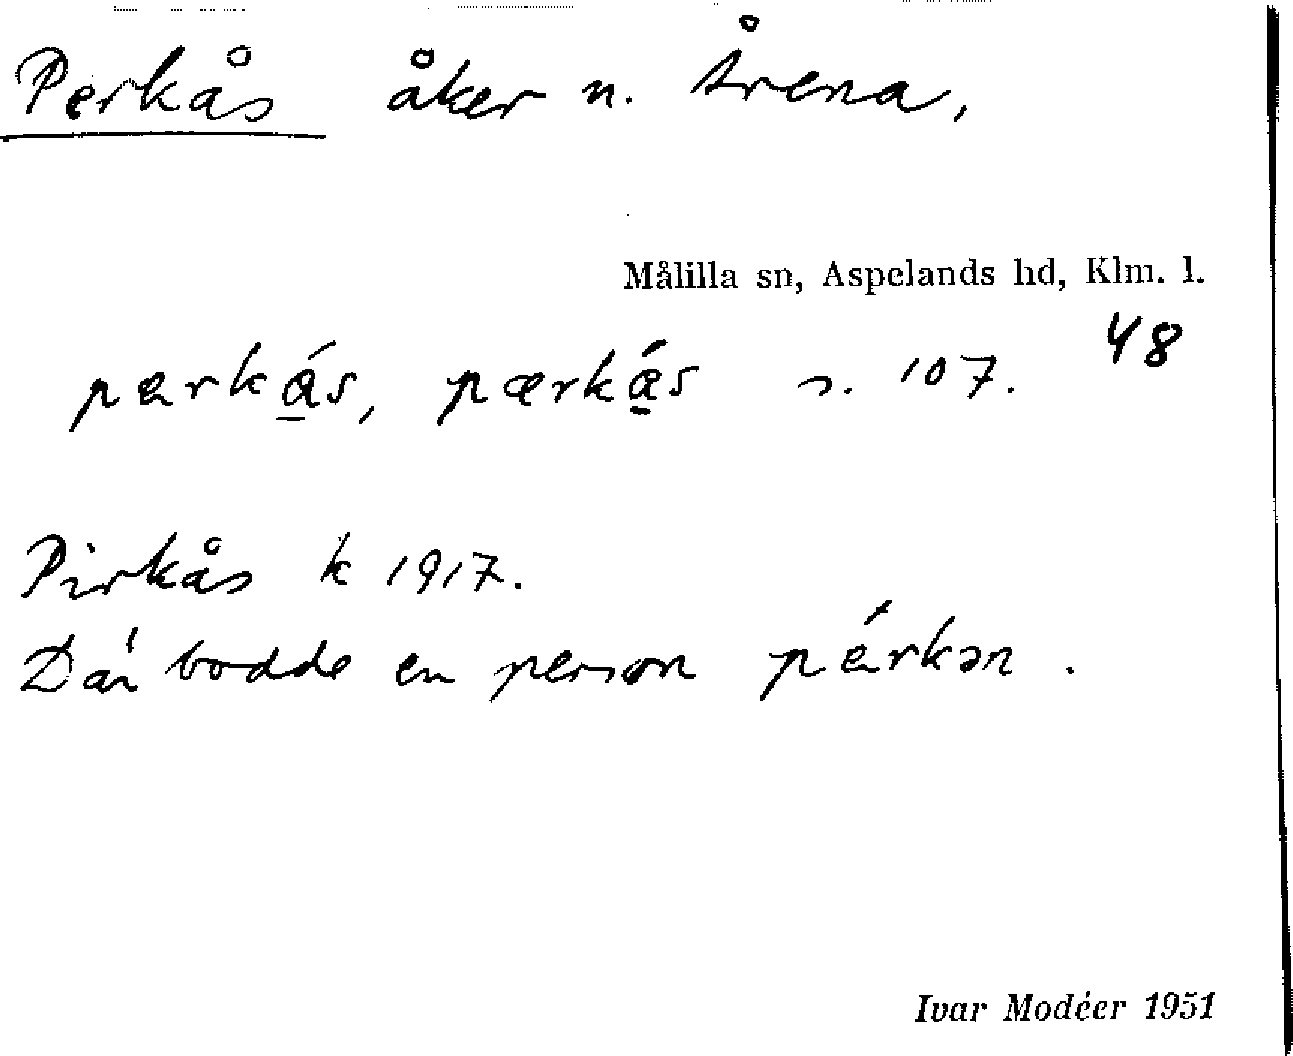 Perkås åker n. Årena,
Målilla sn, Aspelands hd, Klm. l.
48
pærká̱s, pærkǽ̱s s. 107.
Pirkås k 1917.
Där bodde en person pǽrkən.
Ivar Modéer 1951